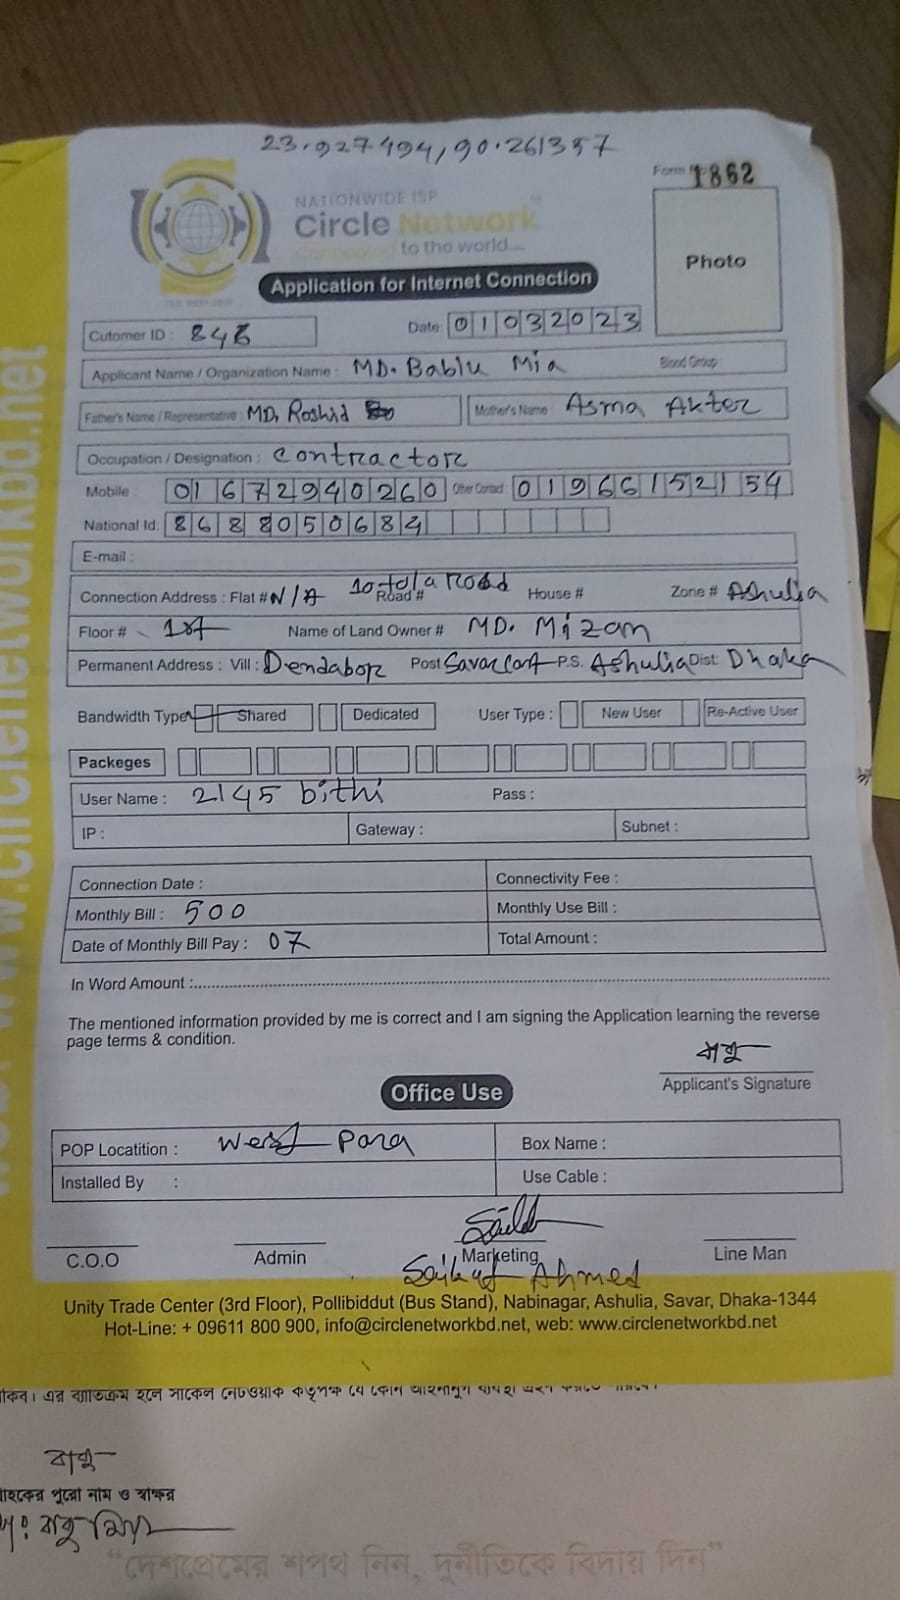 23.927494,90.261357
Form No 1862
NATIONWIDE ISP
Circle Network
Connected to the world....
Photo
Application for Internet Connection
Cutomer ID : 848 Date: 01032023
Applicant Name / Organization Name : MD. Bablu Mia Blood Group:
Father's Name / Representative : MD. Roshid Mother's Name : Asma Akter
Occupation / Designation : contractor
Mobile : 01672940260 Other Contact : 01966152154
National Id: 8688050684
E-mail :
Connection Address : Flat # N/A 10 tola road Road # House # Zone # Ashulia
Floor # 1st Name of Land Owner # MD. Mizan
Permanent Address : Vill : Dendabor Post Savar Cant P.S. Ashulia Dist: Dhaka
Bandwidth Type Shared Dedicated User Type : New User Re-Active User
Packeges
User Name : 2145 bithi Pass :
IP : Gateway : Subnet :
Connection Date : Connectivity Fee :
Monthly Bill : 500 Monthly Use Bill :
Date of Monthly Bill Pay : 07 Total Amount :
In Word Amount :
The mentioned information provided by me is correct and I am signing the Application learning the reverse
page terms & condition.
বাবু
Applicant's Signature
Office Use
POP Locatition : West para Box Name :
Installed By : Use Cable :
C.O.O Admin Marketing Line Man
Saikat Ahmed
Unity Trade Center (3rd Floor), Pollibiddut (Bus Stand), Nabinagar, Ashulia, Savar, Dhaka-1344
Hot-Line: + 09611 800 900, info@circlenetworkbd.net, web: www.circlenetworkbd.net
www.circlenetworkbd.net
এর ব্যতিক্রম হলে সার্কেল নেটওয়ার্ক কর্তৃপক্ষ যে কোন আইনানুগ ব্যবস্থা গ্রহণ
বাবু
পুরো নাম ও স্বাক্ষর
মিয়া
“দেশপ্রেমের শপথ নিন, দুর্নীতিকে বিদায় দিন”